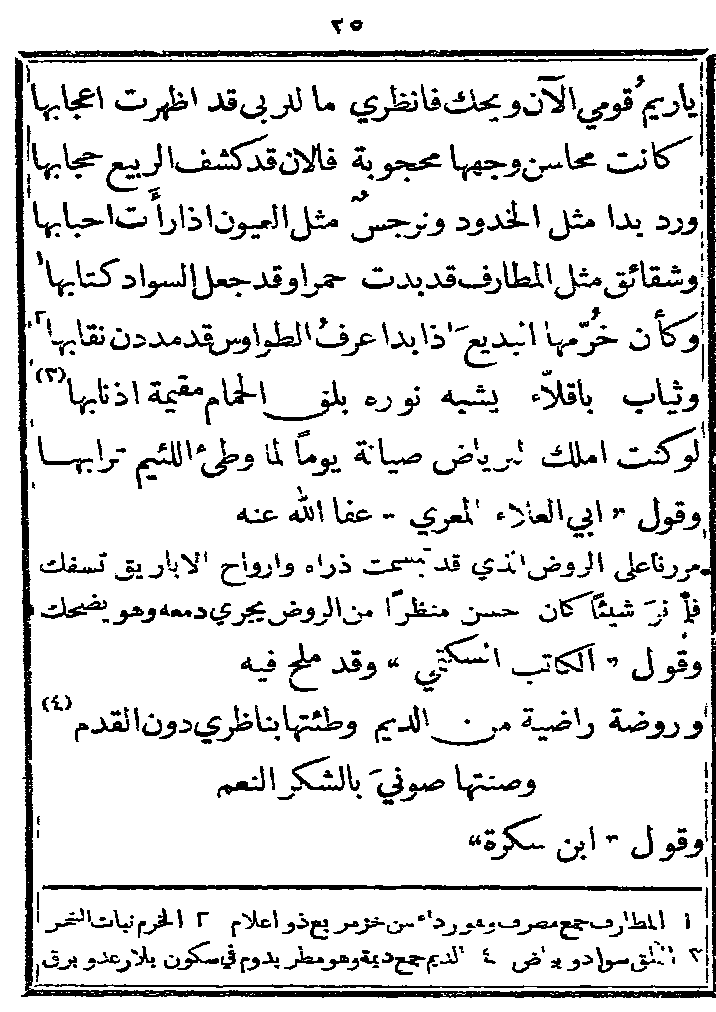 ٢٥
ياريم قومي الآن ويحك فانظري ما للربى قد اظهرت اعجابها
كانت محاسن وجهها محجوبة فالان قد كشف الربيع حجابها
ورد بدا مثل الخدود ونرجس مثل العيون اذا رأت احبابها
وشقائق مثل المطارف قد بدت حمرا وقد جعل السواد كتابها ١
وكأن خُرّمها البديع اذا بدا عرفُ الطواوس قد مددن نقابها ٢
وثياب باقلاّء يشبه نوره بلق الحمام مقيمة اذنابها (٣)
لو كنت املك للرياض صيانة يوماً لما وطئ اللئيم ترابها
وقول « ابي العلاء المعري - عفا الله عنه
مررنا على الروض الذي قد تبسمت ذراه وارواح الاباريق تسفك
فلم نرَ شيئاً كان حسن منظراً من الروض يجري دمعه وهو يضحك
وقول « الكاتب السكتي » وقد ملح فيه
وروضة راضية من الديم وطئتها بناظري دون القدم (٤)
وصنتها صونيَ بالشكر النعم
وقول « ابن سكرة »
١ المطارف جمع مصرف وهو رداء من خز مربع ذو اعلام ٢ الخرم نبات الشجر
٣ البلق سواد وبياض ٤ الديم جمع ديمة وهو مطر يدوم في سكون بلا رعد وبرق